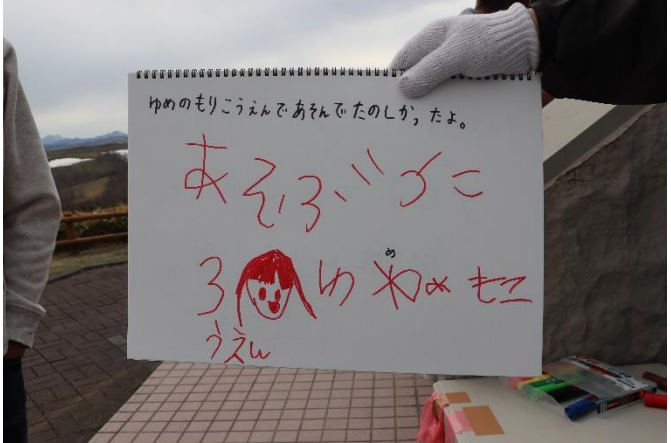 ゆめのもりこうえんであそんでたのしかったよ。
あそぶづこ
め
ろ ゆ ぬ もこ
うえん